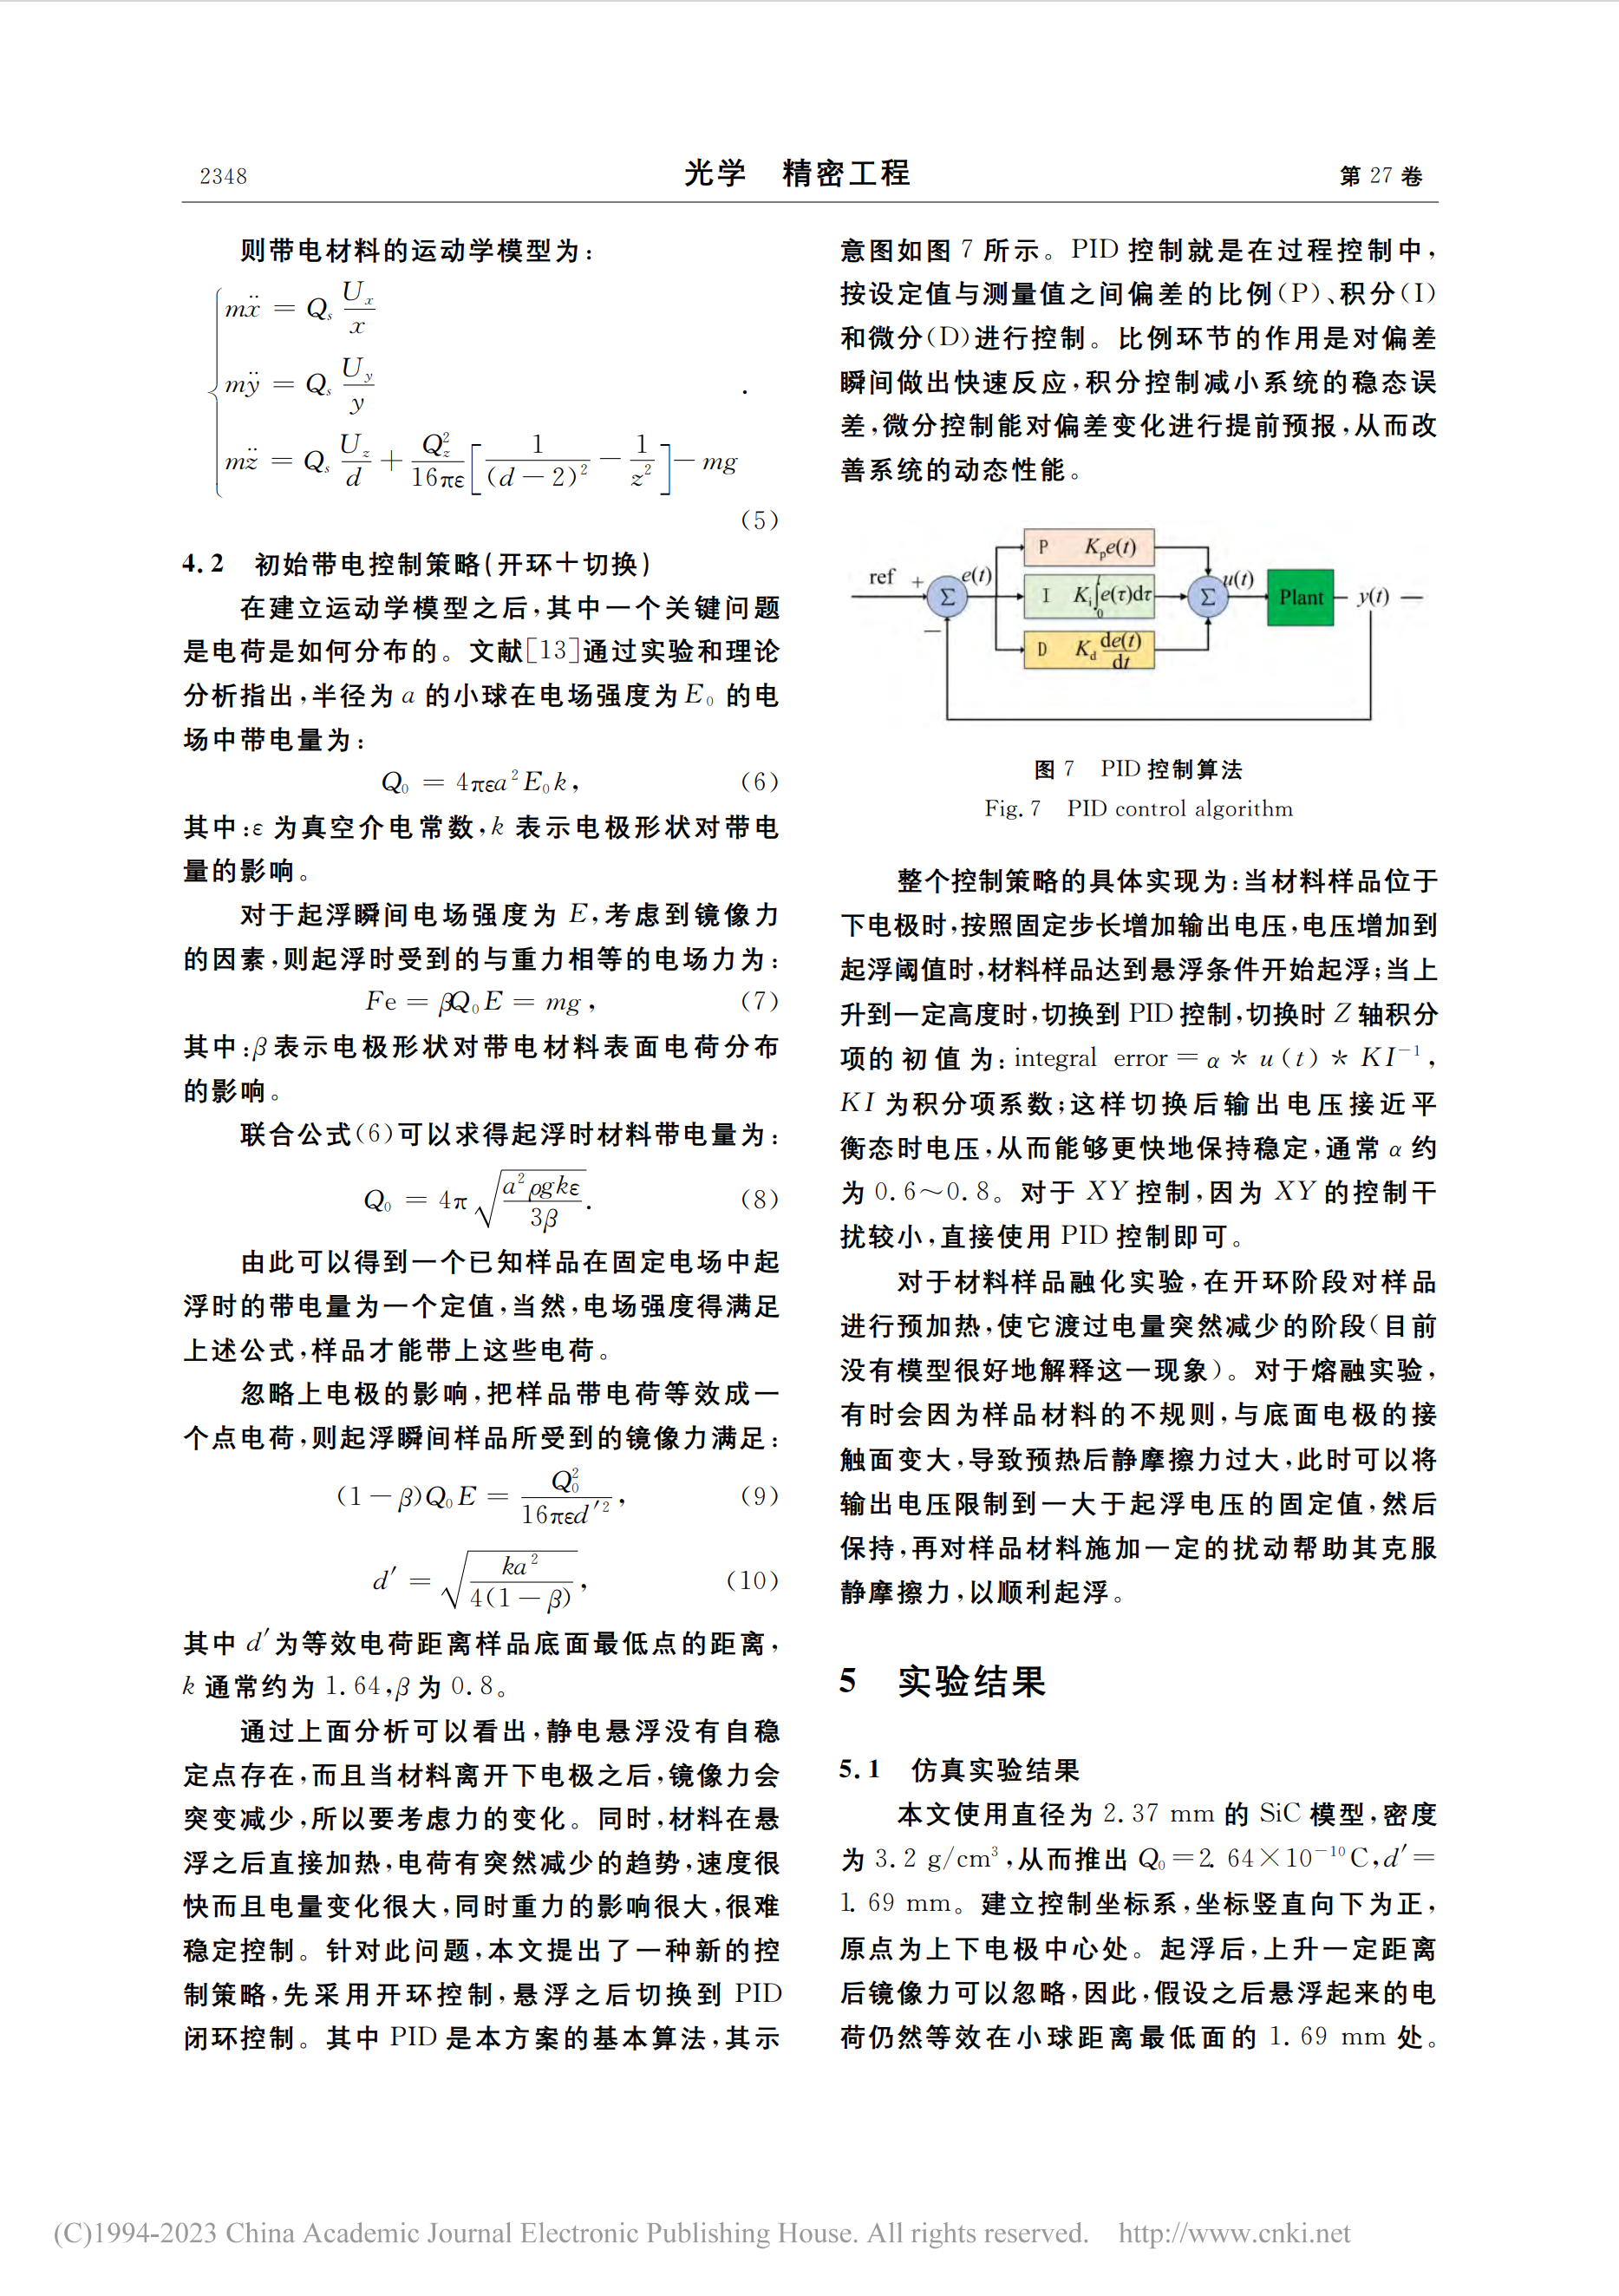 2348
光学　精密工程
第 27 卷
则带电材料的运动学模型为:
mẍ = Q_s U_x/x
mÿ = Q_s U_y/y
.
mz̈ = Q_s U_z/d + Q_z²/16πε [1/(d－2)² － 1/z²] － mg
(5)
4.2　初始带电控制策略(开环＋切换)
在建立运动学模型之后,其中一个关键问题
是电荷是如何分布的。文献[13]通过实验和理论
分析指出,半径为 a 的小球在电场强度为 E₀ 的电
场中带电量为:
Q₀ = 4πεa²E₀k,　(6)
其中:ε 为真空介电常数,k 表示电极形状对带电
量的影响。
对于起浮瞬间电场强度为 E,考虑到镜像力
的因素,则起浮时受到的与重力相等的电场力为:
Fe = βQ₀E = mg,　(7)
其中:β表示电极形状对带电材料表面电荷分布
的影响。
联合公式(6)可以求得起浮时材料带电量为:
Q₀ = 4π√(a²ρgkε/3β).　(8)
由此可以得到一个已知样品在固定电场中起
浮时的带电量为一个定值,当然,电场强度得满足
上述公式,样品才能带上这些电荷。
忽略上电极的影响,把样品带电荷等效成一
个点电荷,则起浮瞬间样品所受到的镜像力满足:
(1－β)Q₀E = Q₀²/16πεd′²,　(9)
d′ = √(ka²/4(1－β)),　(10)
其中 d′为等效电荷距离样品底面最低点的距离,
k 通常约为 1.64,β为 0.8。
通过上面分析可以看出,静电悬浮没有自稳
定点存在,而且当材料离开下电极之后,镜像力会
突变减少,所以要考虑力的变化。同时,材料在悬
浮之后直接加热,电荷有突然减少的趋势,速度很
快而且电量变化很大,同时重力的影响很大,很难
稳定控制。针对此问题,本文提出了一种新的控
制策略,先采用开环控制,悬浮之后切换到 PID
闭环控制。其中 PID 是本方案的基本算法,其示
意图如图 7 所示。PID 控制就是在过程控制中,
按设定值与测量值之间偏差的比例(P)、积分(I)
和微分(D)进行控制。比例环节的作用是对偏差
瞬间做出快速反应,积分控制减小系统的稳态误
差,微分控制能对偏差变化进行提前预报,从而改
善系统的动态性能。
P　K_p e(t)
ref　+　Σ　e(t)
I　K_i∫₀ᵗe(τ)dτ
Σ　u(t)　Plant　y(t)
−
D　K_d de(t)/dt
图 7　PID 控制算法
Fig. 7　PID control algorithm
整个控制策略的具体实现为:当材料样品位于
下电极时,按照固定步长增加输出电压,电压增加到
起浮阈值时,材料样品达到悬浮条件开始起浮;当上
升到一定高度时,切换到 PID 控制,切换时 Z 轴积分
项的初值为:integral error = α * u(t) * KI⁻¹,
KI 为积分项系数;这样切换后输出电压接近平
衡态时电压,从而能够更快地保持稳定,通常 α 约
为 0.6～0.8。对于 XY 控制,因为 XY 的控制干
扰较小,直接使用 PID 控制即可。
对于材料样品融化实验,在开环阶段对样品
进行预加热,使它渡过电量突然减少的阶段(目前
没有模型很好地解释这一现象)。对于熔融实验,
有时会因为样品材料的不规则,与底面电极的接
触面变大,导致预热后静摩擦力过大,此时可以将
输出电压限制到一大于起浮电压的固定值,然后
保持,再对样品材料施加一定的扰动帮助其克服
静摩擦力,以顺利起浮。
5　实验结果
5.1　仿真实验结果
本文使用直径为 2.37 mm 的 SiC 模型,密度
为 3.2 g/cm³,从而推出 Q₀=2.64×10⁻¹⁰C,d′=
1.69 mm。建立控制坐标系,坐标竖直向下为正,
原点为上下电极中心处。起浮后,上升一定距离
后镜像力可以忽略,因此,假设之后悬浮起来的电
荷仍然等效在小球距离最低面的 1.69 mm 处。
(C)1994-2023 China Academic Journal Electronic Publishing House. All rights reserved.　http://www.cnki.net